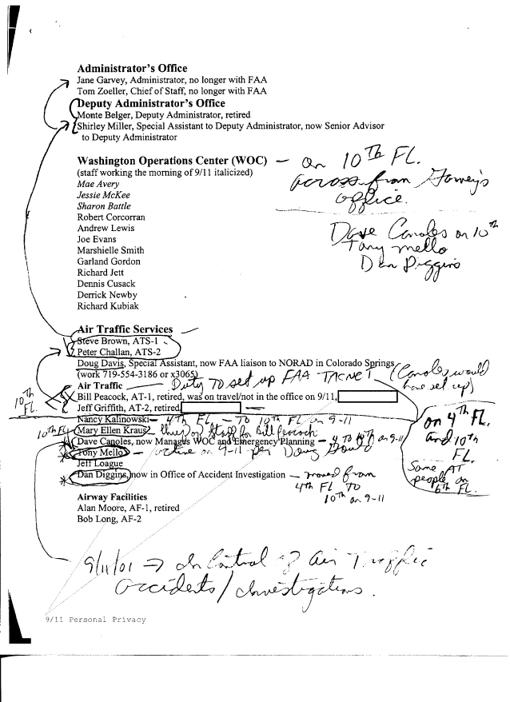 Administrator's Office
Jane Garvey, Administrator, no longer with FAA
Tom Zoeller, Chief of Staff, no longer with FAA
Deputy Administrator's Office
Monte Belger, Deputy Administrator, retired
Shirley Miller, Special Assistant to Deputy Administrator, now Senior Advisor
to Deputy Administrator
Washington Operations Center (WOC) — on 10th FL.
across from Garvey's
office.
(staff working the morning of 9/11 italicized)
Mae Avery
Jessie McKee
Sharon Battle
Robert Corcoran
Andrew Lewis
Joe Evans
Marshielle Smith
Garland Gordon
Richard Jett
Dennis Cusack
Derrick Newby
Richard Kubiak
Dave Canoles on 10th
Tony Mello
Dan Diggins
Air Traffic Services —
Steve Brown, ATS-1
Peter Challan, ATS-2
Doug Davis, Special Assistant, now FAA liaison to NORAD in Colorado Springs
(work 719-554-3186 or x3065)
Air Traffic — Duty to set up FAA TACNET (Canoles would
have set up)
10th FL.
Bill Peacock, AT-1, retired, was on travel/not in the office on 9/11,
Jeff Griffith, AT-2, retired
Nancy Kalinowski — 4th FL — to 10th FL on 9-11
10th FL Mary Ellen Kraus — Chief of Staff for Bill Peacock
Dave Canoles, now Manages WOC and Emergency Planning — 4 to 10th on 9-11
Tony Mello — active on 9-11 per Doug Gould
Jeff Loague
Dan Diggins, now in Office of Accident Investigation — moved from
4th FL to
10th on 9-11
on 4th FL.
and 10th
FL.
Some AT
people on
6th FL.
Airway Facilities
Alan Moore, AF-1, retired
Bob Long, AF-2
9/11/01 → In Control of Air Traffic
accidents/investigations.
9/11 Personal Privacy